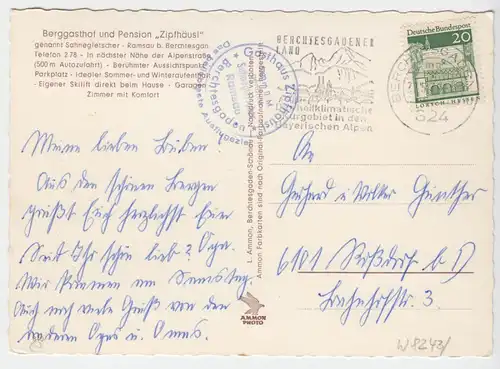 Berggasthof und Pension „Zipfhäusl"
genannt Sahnegletscher - Ramsau b. Berchtesgaden
Telefon 2 78 - In nächster Nähe der Alpenstraße
(500 m Autozufahrt) - Berühmter Aussichtspunkt
Parkplatz - Idealer Sommer- und Winteraufenthalt
- Eigener Skilift direkt beim Hause - Garagen
Zimmer mit Komfort
Gasthaus Zipfhäusl
Ramsau
Berchtesgaden
BERCHTESGADENER
LAND
heilklimatische
Kurgebiet in den
Bayerischen Alpen
BERCHTESGADEN
824
Deutsche Bundespost
20
LORSCH · HESSEN
Meine lieben Buben
Aus den schönen Bergen
grüßt Euch herzlichst Euer
Seid Ihr schön lieb? Opa.
Wir kommen am Samstag.
Auch noch viele Grüße von den
anderen Opas u. Omas.
L. Ammon, Berchtesgaden-Schönau
Nachdruck verboten
Ammon Farbkarten sind nach Original-Farbaufnahmen hergestellt
AMMON
PHOTO
An
Gerhard und Volker Günther
6101 Roßdorf b/
Bahnhofstr. 3
W8243/